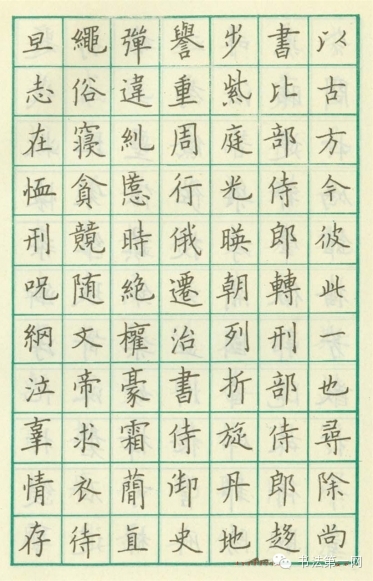 以古方今彼此一也尋除尚
書比部侍郎轉刑部侍郎趍
步紫庭光暎朝列折旋丹地
譽重周行俄遷治書侍御史
彈違糺慝時絶權豪霜蕳直
繩俗寑貪競随文帝求衣待
旦志在恤刑咒網泣辜情存
书法第一网